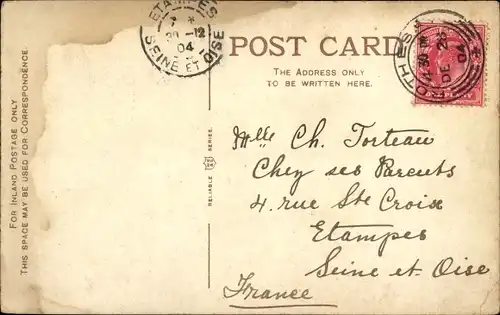 ETAMPES
30-12
04
SEINE ET OISE
POST CARD
THE ADDRESS ONLY
TO BE WRITTEN HERE.
DE 28
04
FOR INLAND POSTAGE ONLY
THIS SPACE MAY BE USED FOR CORRESPONDENCE.
RELIABLE SERIES.
Melle Ch. Torteau
Chez ses Parents
4. rue Ste Croix
Etampes
Seine et Oise
France